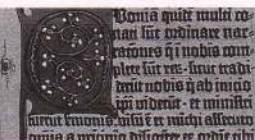 Quoniā quidē multi co-
nati sūt ordinare nar-
rationes q̄ i nobis com-
plete sūt re⁊: sicut tradi-
derūt nobis q̄ ab inicio
ipi viderūt: et ministri
fuerūt sermonis: visū ē et michi assecuto
omnia a principio diligēter ex ordīe tibi